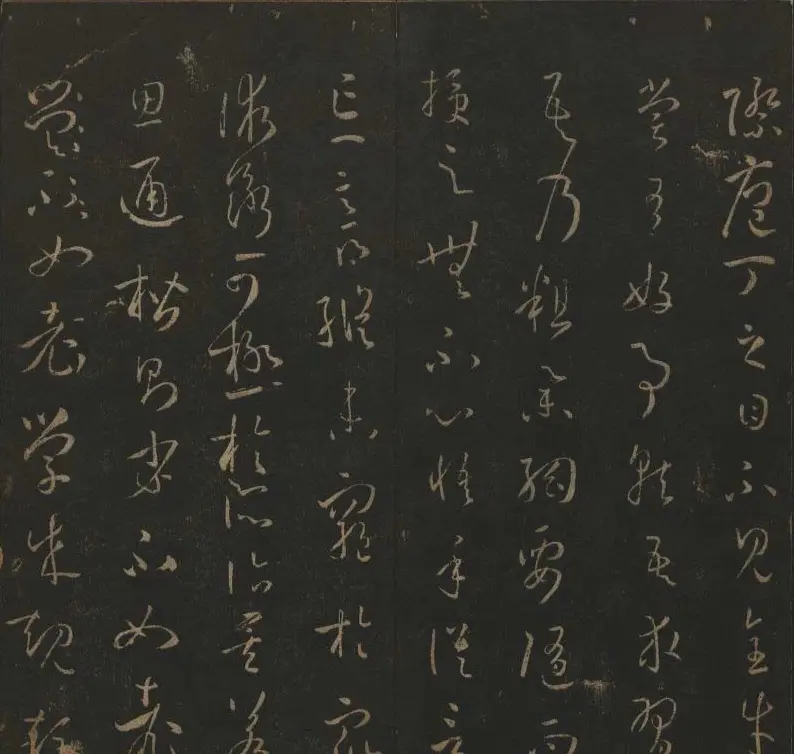 際庖丁之目不見全牛
嘗有好事就吾求習
吾乃粗舉綱要隨而
授之無不心悟手從言
忘意得縱未窮於眾
術斷可極於所詣矣若
思通楷則少不如老
如老學成規矩